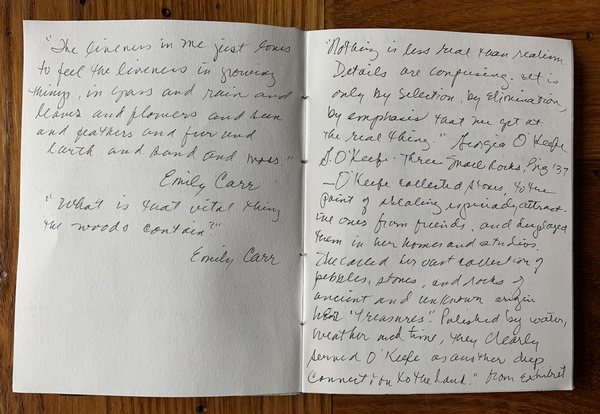 "The liveness in me just loves
to feel the liveness in growing
things, in grass and rain and
leaves and flowers and sun
and feathers and fur and
earth and sand and moss."
Emily Carr
"What is that vital thing
the woods contain?"
Emily Carr
"Nothing is less real than realism
Details are confusing. It is
only by selection, by elimination,
by emphasis that we get at
the real thing." Georgia O'Keefe
G. O'Keefe. Three Small Rocks, Big '37
— O'Keefe collected stones, to the
point of stealing especially attract-
ive ones from friends, and displayed
them in her homes and studios.
She called her vast collection of
pebbles, stones, and rocks of
ancient and unknown origin
her "treasures". Polished by water,
weather and time, they clearly
served O'Keefe as another deep
connection to the land." from exhibit